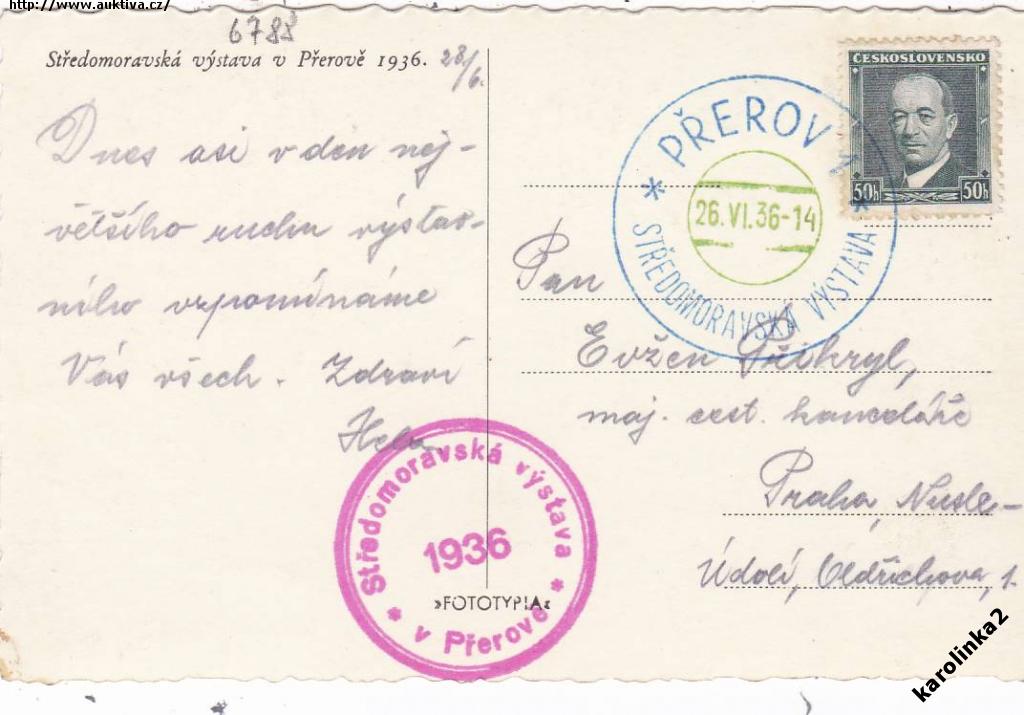 http://www.auktiva.cz/
6788
Středomoravská výstava v Přerově 1936. 28/6.
Dnes asi v den nej-
většího ruchu výstav-
ního vzpomínáme
Vás všech. Zdraví
Hela
Středomoravská výstava
1936
* v Přerově *
»FOTOTYPIA«
ČESKOSLOVENSKO
50h 50h
* PŘEROV 1 *
26.VI.36-14
STŘEDOMORAVSKÁ VÝSTAVA
Pan
Evžen Přikryl,
maj. cest. kanceláře
Praha, Nusle-
Údolí, Oldřichova 1.
karolinka2